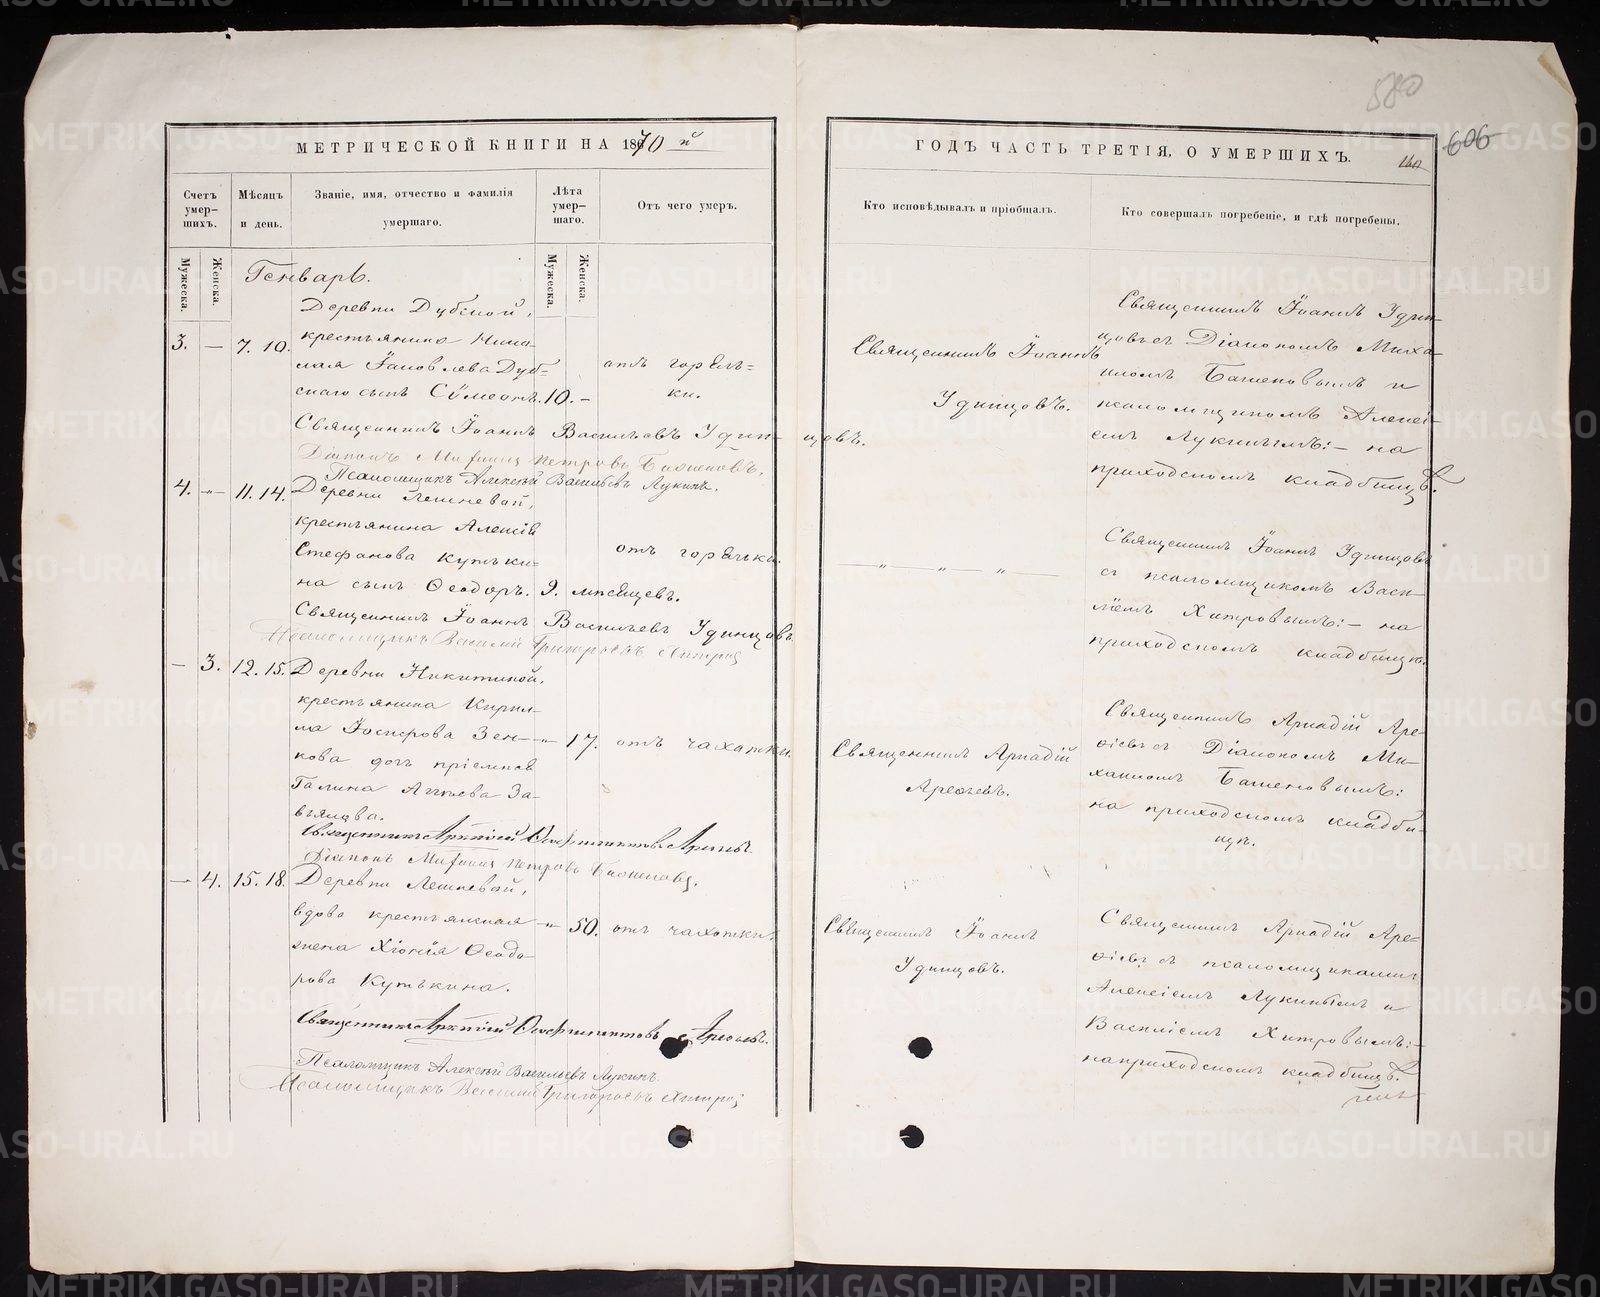 580
606
МЕТРИЧЕСКОЙ КНИГИ НА 1870 й
ГОДЪ ЧАСТЬ ТРЕТІЯ, О УМЕРШИХЪ.
Счетъ умер-шихъ.
Мѣсяцъ и день.
Званіе, имя, отчество и фамилія умершаго.
Лѣта умер-шаго.
Отъ чего умеръ.
Кто исповѣдывалъ и пріобщалъ.
Кто совершалъ погребеніе, и гдѣ погребены.
Мужеска.
Женска.
Мужеска.
Женска.
Генварь.
Деревни Дубской,
3. — 7. 10. крестьянина Нико-
лая Іаковлева Дуб-
скаго сынъ Сѵмеонъ. 10. –
отъ горяч-
ки.
Священникъ Іоаннъ
Удинцовъ.
Священникъ Іоаннъ Удин-
цовъ съ Діакономъ Миха-
иломъ Баженовымъ и
псаломщикомъ Алексі-
емъ Лукинымъ:– на
приходскомъ кладбищѣ.
Священникъ Іоаннъ Васильевъ Удинцовъ.
Діаконъ Михаилъ Петровъ Баженовъ.
Псаломщикъ Алексѣй Васильевъ Лукинъ.
4. — 11. 14. Деревни Лешневой,
крестьянина Алексія
Стефанова Кутьки-
на сынъ Ѳеодоръ. 9. мѣсяцевъ.
отъ горячки.
— „ — „ — „ —
Священникъ Іоаннъ Удинцовъ
съ псаломщикомъ Васи-
ліемъ Хитровымъ:– на
приходскомъ кладбищѣ.
Священникъ Іоаннъ Васильевъ Удинцовъ
Псаломщикъ Василій Григорьевъ Хитровъ
— 3. 12. 15. Деревни Никитиной,
крестьянина Кирил-
ла Іосифова Зен-
кова дочь пріемная
Галина Аггеева За-
вьялова.
— „ 17. отъ чахотки.
Священникъ Аркадій
Арефьевъ.
Священникъ Аркадій Аре-
фіевъ съ Діакономъ Ми-
хаиломъ Баженовымъ:
на приходскомъ кладби-
щѣ.
Священникъ Аркадій Арефьевъ.
Діаконъ Михаилъ Петровъ Баженовъ.
— 4. 15. 18. Деревни Лешневой,
вдова крестьянская
жена Хіонія Ѳеодо-
рова Кутькина.
— „ 50. отъ чахотки.
Священникъ Іоаннъ
Удинцовъ.
Священникъ Аркадій Аре-
фіевъ съ псаломщиками
Алексіемъ Лукинымъ и
Василіемъ Хитровымъ:–
на приходскомъ кладбищѣ.
Священникъ Аркадій Арефьевъ.
Псаломщикъ Алексѣй Васильевъ Лукинъ
Псаломщикъ Василій Григорьевъ Хитровъ
METRIKI.GASO-URAL.RU